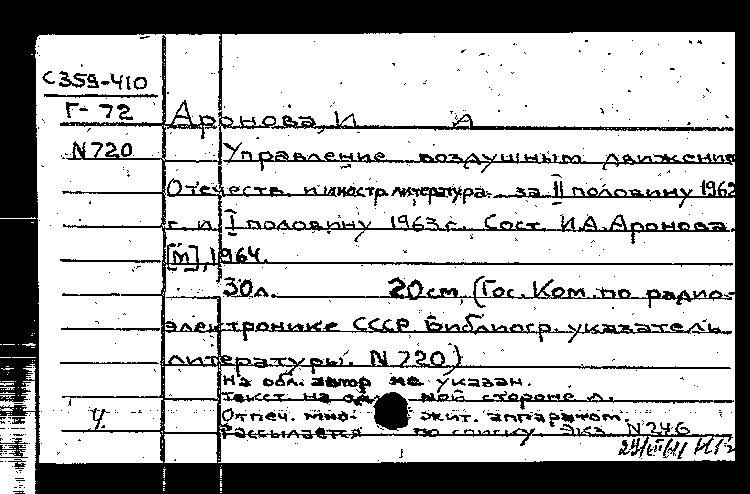 С359-410
Г-72
Аронова, И А
N720
Управление воздушным движение
Отечеств. и иностр. литература за II половину 1962
г. и I половину 1963 г. Сост. И.А.Аронова.
[М], 1964.
30л. 20см, (Гос. Ком. по радио-
электронике СССР Библиогр. указатель
литературы. N 720)
На обл. автор не указан.
Текст на од ной стороне л.
Отпеч. мно- жит. аппаратом.
Рассылается по списку. Экз. N246
Ч.